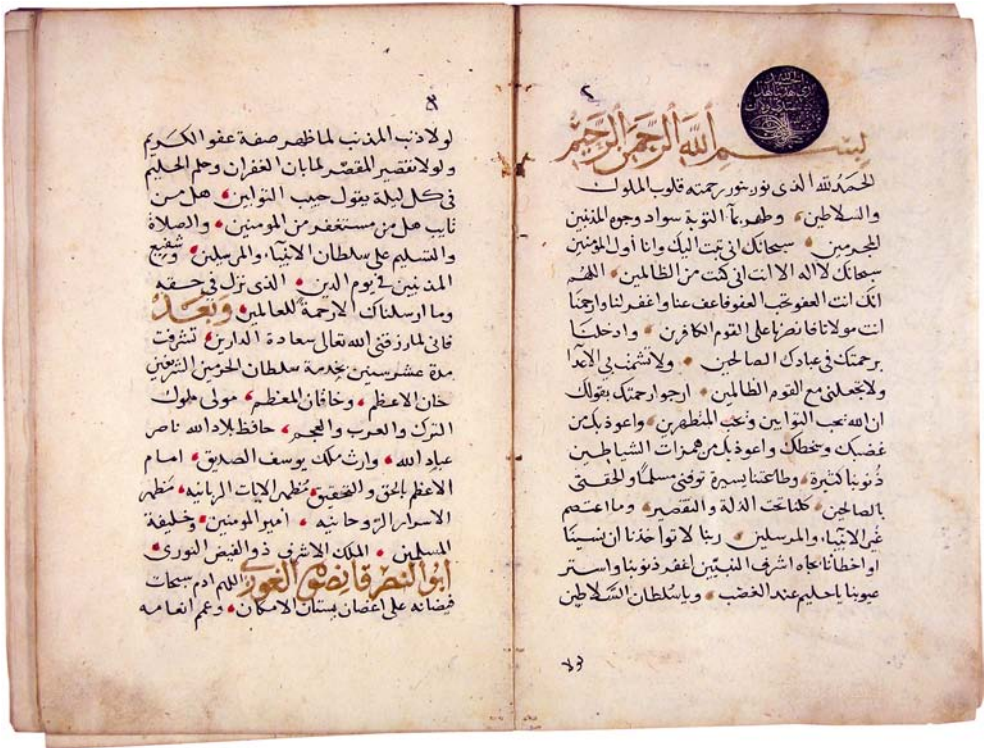 ٢
بسم الله الرحمن الرحيم
الحمد لله الذى نور بنور رحمته قلوب الملوك
والسلاطين وطهر بمآ التوبة سواد وجوه المذنبين
المجرمين سبحانك انى تبت اليك وانا أول المؤمنين
سبحانك لا اله الا انت انى كنت من الظالمين اللهم
انك انت العفو تحب العفو فاعف عنا واغفر لنا وارحمنا
انت مولانا فانصرنا على القوم الكافرين وادخلنا
برحمتك فى عبادك الصالحين ولا تشمت بي الاعدا
ولا تجعلنى مع القوم الظالمين ارجو ارحمتك بقولك
ان الله يحب التوابين ويحب المتطهرين واعوذ بك من
غضبك وسخطك واعوذ بك من همزات الشياطين
ذنوبنا كثيرة وطاعتنا يسيرة توفنى مسلمًا والحقنى
بالصالحين كلنا تحت الذلة والتقصير وما اعتصم
غير الانبيآء والمرسلين ربنا لا تواخذنا ان نسينا
او اخطانا بجاه اشرف النبيين اغفر ذنوبنا واستر
عيوبنا يا حليم عند الغضب ويا سلطان السلاطين
لولا ذنب المذنب لما ظهر صفة عفو الكريم
ولولا تقصير المقصر لما بان الغفران وحلم الحليم
فى كل ليلة يقول حبيب التوابين هل من
تايب هل من مستغفر من المومنين والصلاة
والتسليم على سلطان الانبيآء والمرسلين وشفيع
المذنبين فى يوم الدين الذى نزل فى حقه
وما ارسلناك الا رحمة للعالمين وبعد
فانى لما رزقنى الله تعالى سعادة الدارين تشرفت
مدة عشر سنين بخدمة سلطان الحرمين الشريفين
خان الاعظم وخاقان المعظم مولى ملوك
الترك والعرب والعجم حافظ بلاد الله ناصر
عباد الله وارث ملك يوسف الصديق امام
الاعظم بالحق والتحقيق مظهر الايات الربانيه مظهر
الاسرار الروحانيه امير المومنين وخليفة
المسلمين الملك الاشرف ذو الفيض النورى
ابو النصر قانصوه الغورى اللهم ادم سبحات
فيضانه على اغصان بستان الامكان وعمم انعامه